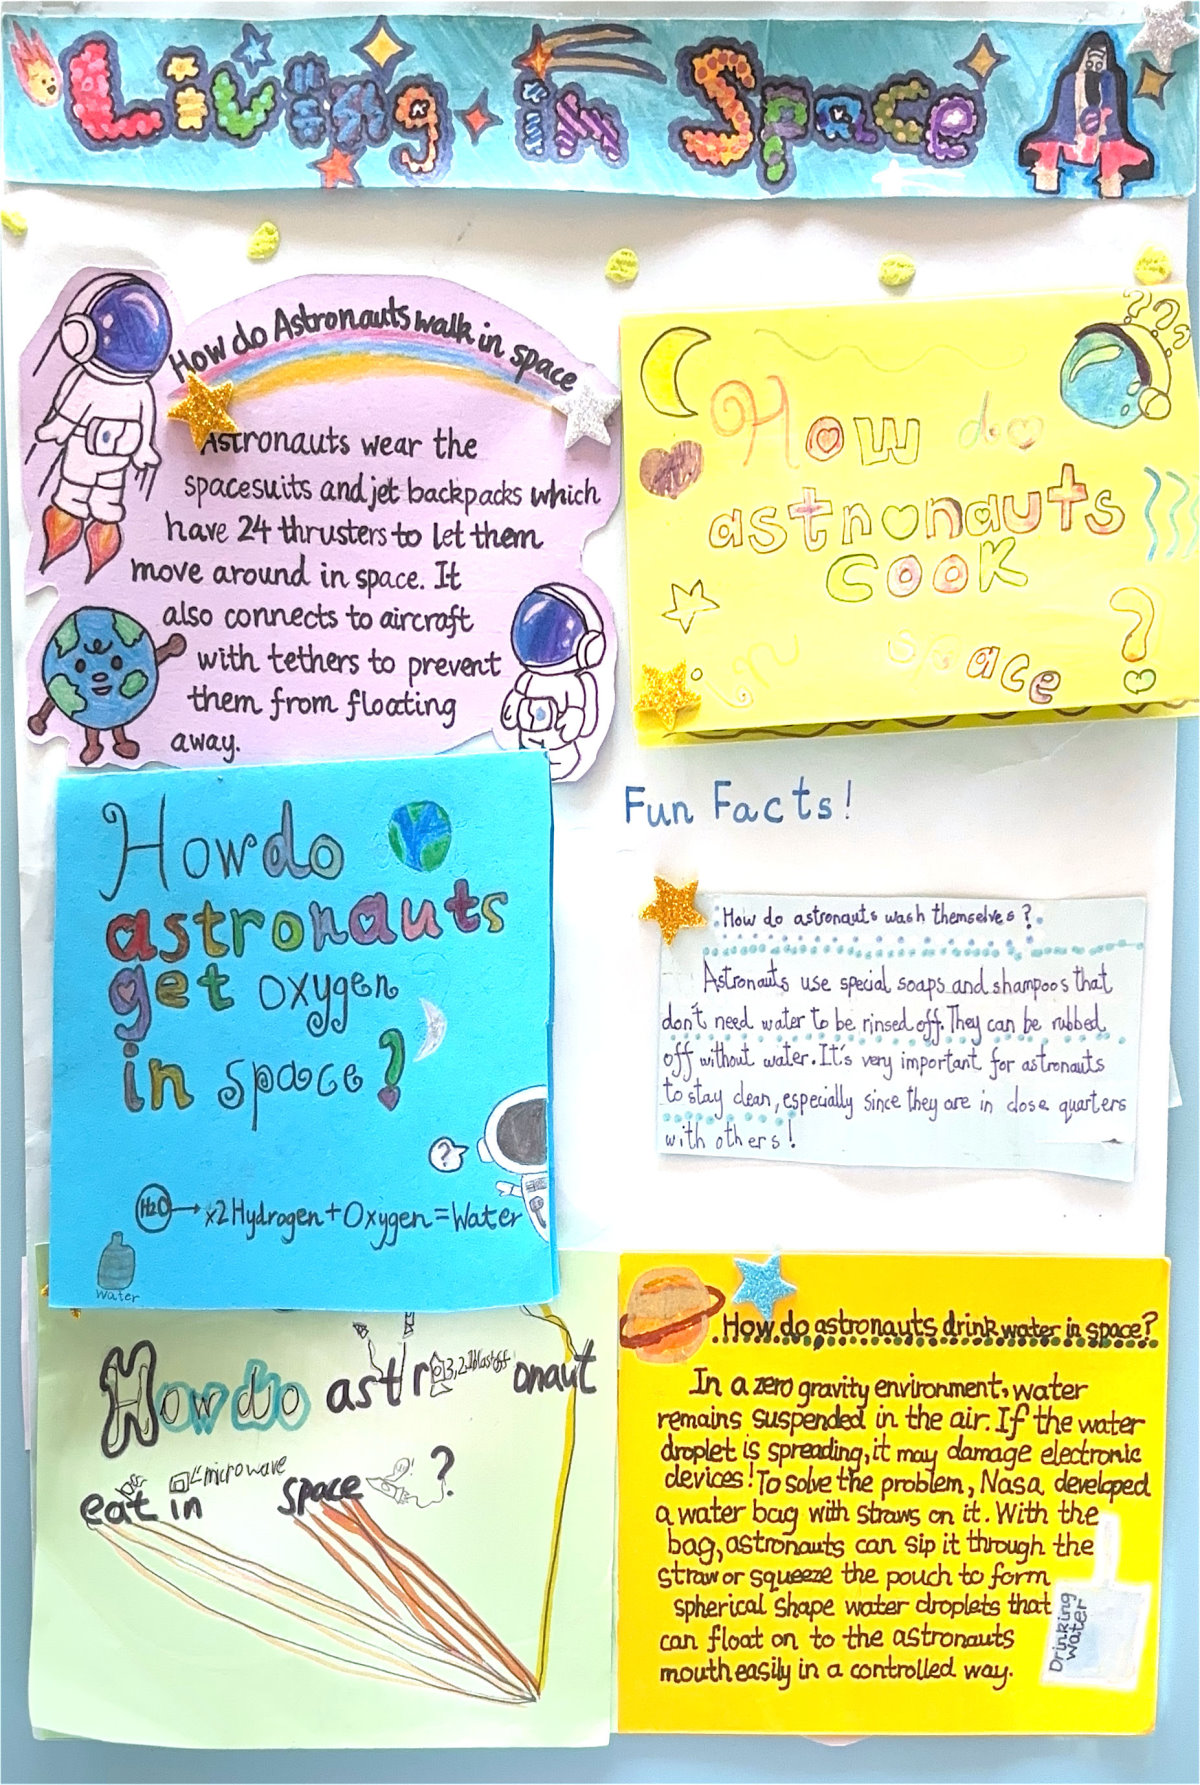 Living in Space
How do Astronauts walk in space
Astronauts wear the
spacesuits and jet backpacks which
have 24 thrusters to let them
move around in space. It
also connects to aircraft
with tethers to prevent
them from floating
away.
How do
astronauts
cook
in space
?
How do
astronauts
get oxygen
in space?
?
H2O → x2 Hydrogen + Oxygen = Water
Water
Fun Facts!
How do astronauts wash themselves?
Astronauts use special soaps and shampoos that
don't need water to be rinsed off. They can be rubbed
off without water. It's very important for astronauts
to stay clean, especially since they are in close quarters
with others!
How do astronaut
3,2,1blastoff
microwave
eat in space ?
How do astronauts drink water in space?
In a zero gravity environment, water
remains suspended in the air. If the water
droplet is spreading, it may damage electronic
devices! To solve the problem, Nasa developed
a water bag with straws on it. With the
bag, astronauts can sip it through the
straw or squeeze the pouch to form
spherical shape water droplets that
can float on to the astronauts
mouth easily in a controlled way.
Drinking
Water